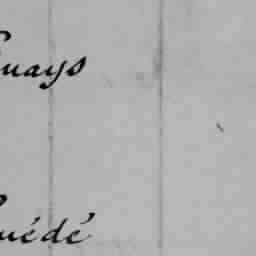 uays
uédé